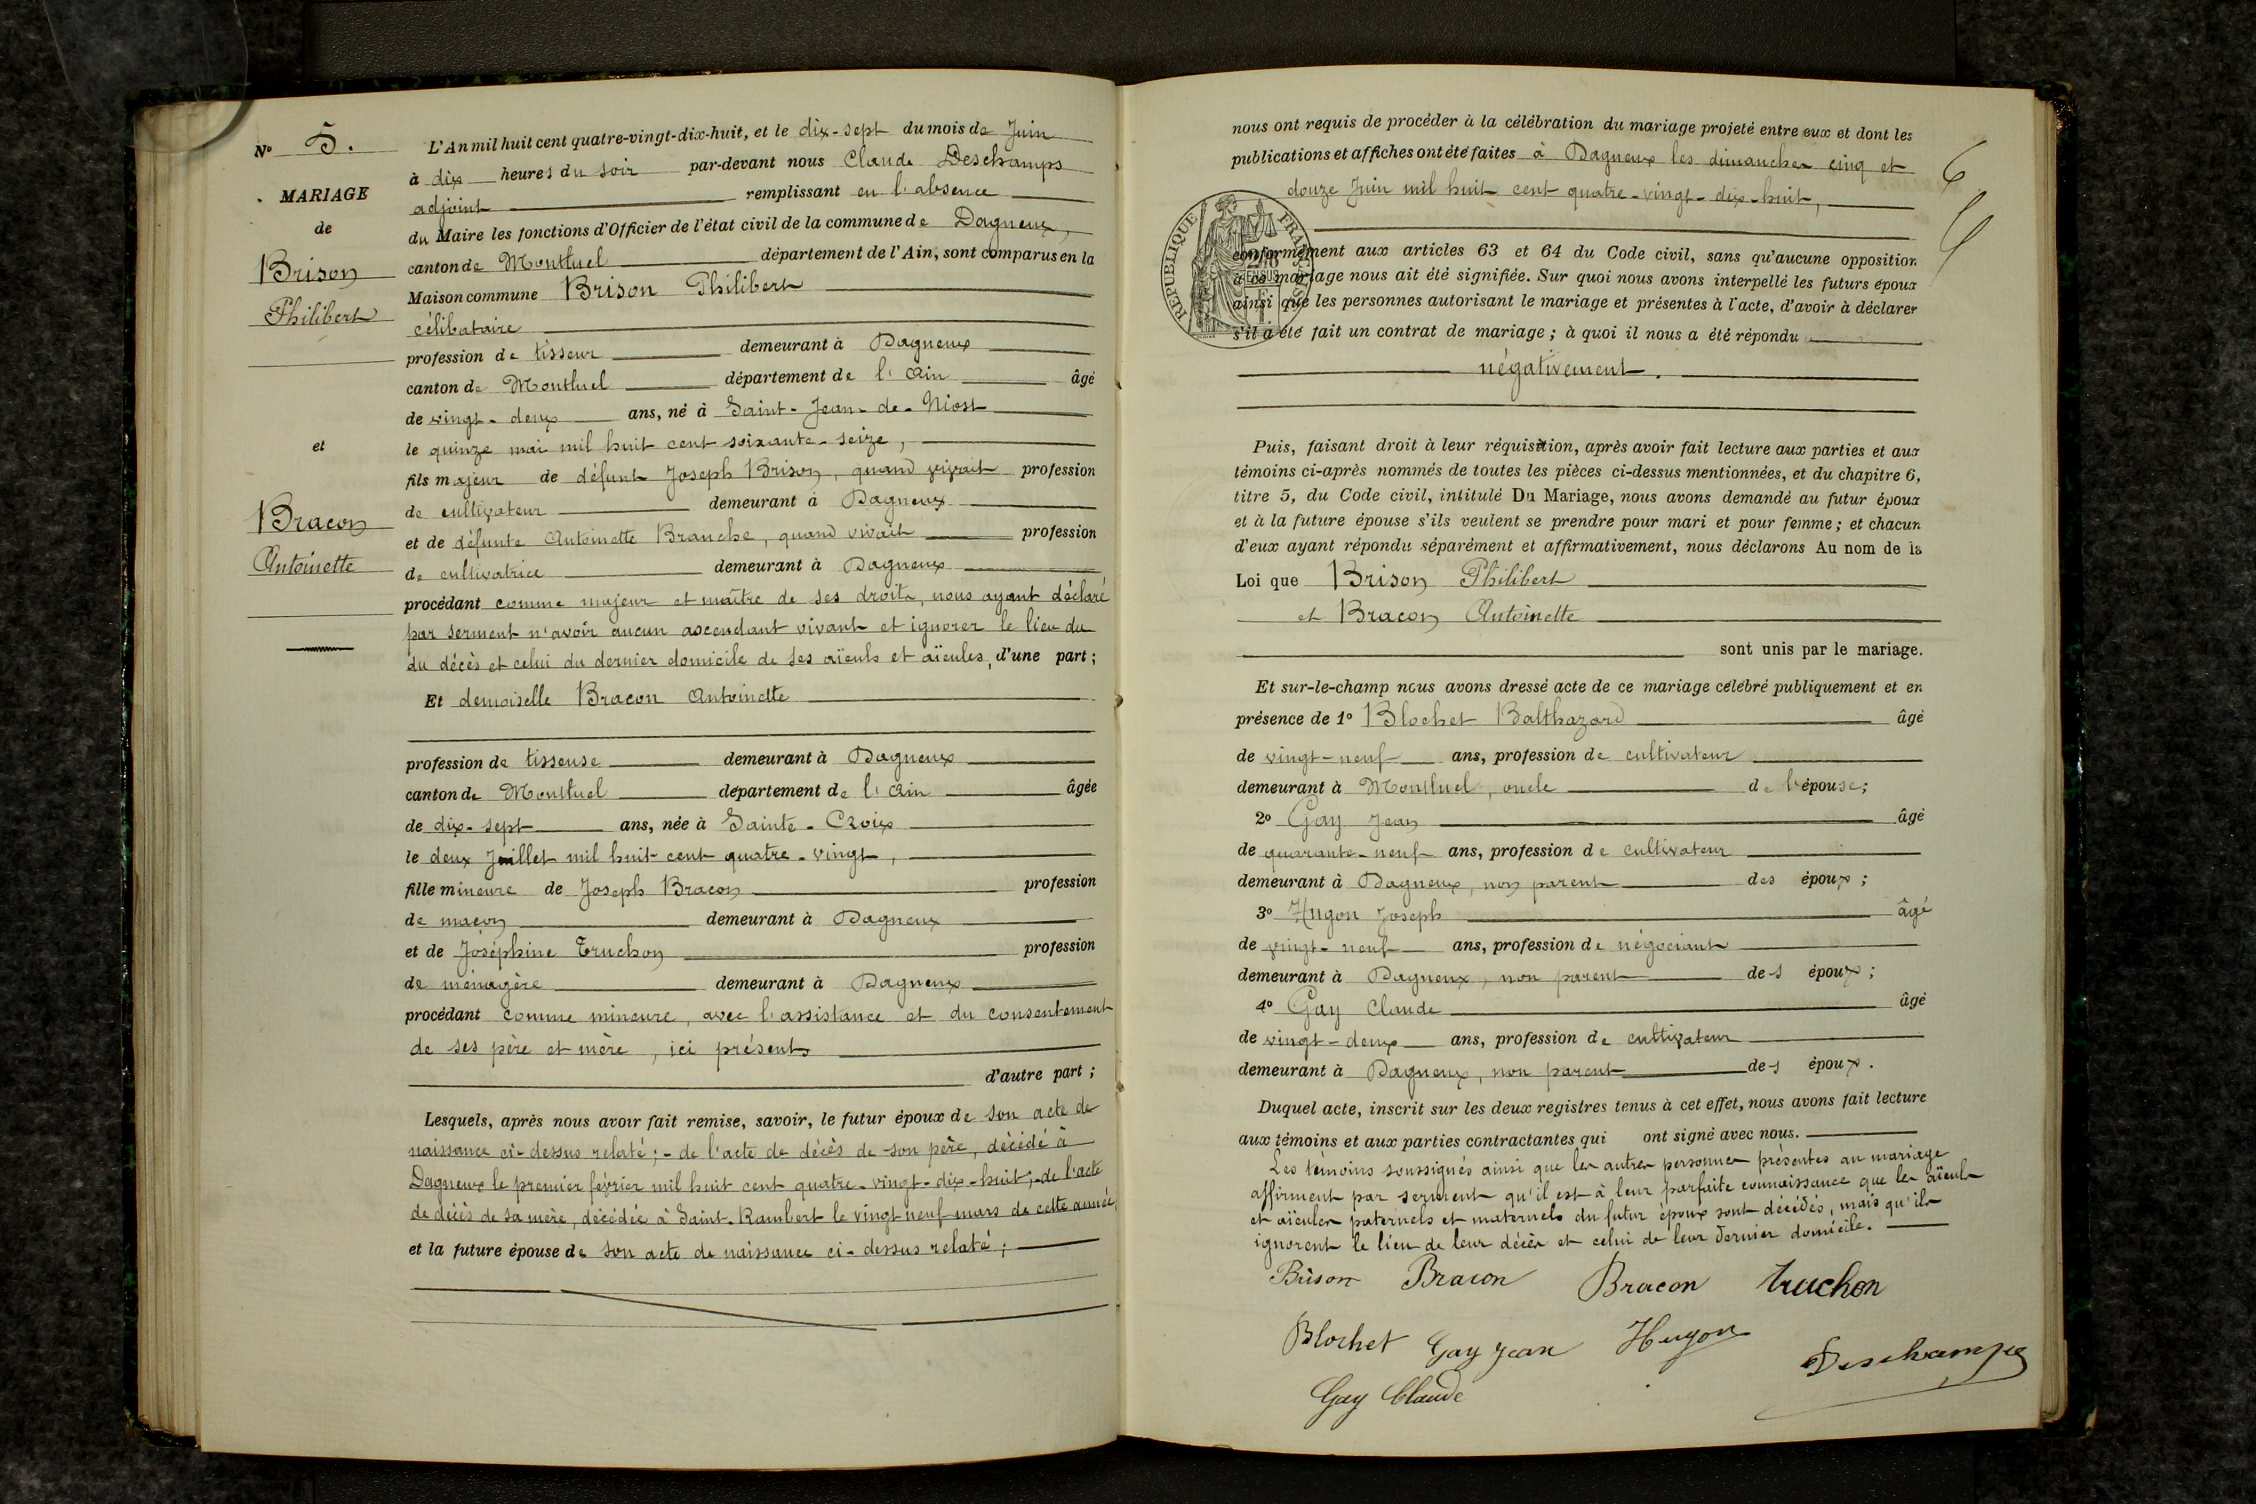 N° 5.
MARIAGE
de
Brison
Philibert
et
Bracon
Antoinette
L'An mil huit cent quatre-vingt-dix-huit, et le dix-sept du mois de Juin
à dix heures du soir par-devant nous Claude Deschamps
adjoint remplissant en l'absence
du Maire les fonctions d'Officier de l'état civil de la commune de Dagneux,
canton de Montluel département de l'Ain, sont comparus en la
Maison commune Brison Philibert
célibataire
profession de tisseur demeurant à Dagneux
canton de Montluel département de l'Ain âgé
de vingt-deux ans, né à Saint-Jean-de-Niost
le quinze mai mil huit cent soixante-seize,
fils majeur de défunt Joseph Brison, quand vivait profession
de cultivateur demeurant à Dagneux
et de défunte Antoinette Branche, quand vivait profession
de cultivatrice demeurant à Dagneux
procédant comme majeur et maître de ses droits, nous ayant déclaré
par serment n'avoir aucun ascendant vivant et ignorer le lieu du
du décès et celui du dernier domicile de ses aïeuls et aïeules, d'une part;
Et demoiselle Bracon Antoinette
profession de tisseuse demeurant à Dagneux
canton de Montluel département de l'Ain âgée
de dix-sept ans, née à Sainte-Croix
le deux Juillet mil huit cent quatre-vingt,
fille mineure de Joseph Bracon profession
de maçon demeurant à Dagneux
et de Joséphine Truchon profession
de ménagère demeurant à Dagneux
procédant comme mineure, avec l'assistance et du consentement
de ses père et mère, ici présents
d'autre part;
Lesquels, après nous avoir fait remise, savoir, le futur époux de son acte de
naissance ci-dessus relaté;- de l'acte de décès de son père, décédé à
Dagneux le premier février mil huit cent quatre-vingt-dix-huit;-de l'acte
de décès de sa mère, décédée à Saint-Rambert le vingt neuf mars de cette année
et la future épouse de son acte de naissance ci-dessus relaté;
nous ont requis de procéder à la célébration du mariage projeté entre eux et dont les
publications et affiches ont été faites à Dagneux les dimanches cinq et
douze Juin mil huit cent quatre-vingt-dix-huit,
RÉPUBLIQUE FRANÇAISE
conformément aux articles 63 et 64 du Code civil, sans qu'aucune opposition
à ce mariage nous ait été signifiée. Sur quoi nous avons interpellé les futurs époux
ainsi que les personnes autorisant le mariage et présentes à l'acte, d'avoir à déclarer
s'il a été fait un contrat de mariage; à quoi il nous a été répondu
négativement.
Puis, faisant droit à leur réquisition, après avoir fait lecture aux parties et aux
témoins ci-après nommés de toutes les pièces ci-dessus mentionnées, et du chapitre 6,
titre 5, du Code civil, intitulé Du Mariage, nous avons demandé au futur époux
et à la future épouse s'ils veulent se prendre pour mari et pour femme; et chacun
d'eux ayant répondu séparément et affirmativement, nous déclarons Au nom de la
Loi que Brison Philibert
et Bracon Antoinette
sont unis par le mariage.
Et sur-le-champ nous avons dressé acte de ce mariage célébré publiquement et en
présence de 1° Blochet Balthazard âgé
de vingt-neuf ans, profession de cultivateur
demeurant à Montluel, oncle de l'épouse;
2° Gay Jean âgé
de quarante-neuf ans, profession de cultivateur
demeurant à Dagneux, non parent des époux;
3° Hugon Joseph âgé
de vingt-neuf ans, profession de négociant
demeurant à Dagneux, non parent des époux;
4° Gay Claude âgé
de vingt-deux ans, profession de cultivateur
demeurant à Dagneux, non parent des époux.
Duquel acte, inscrit sur les deux registres tenus à cet effet, nous avons fait lecture
aux témoins et aux parties contractantes qui ont signé avec nous.
Les témoins soussignés ainsi que les autres personnes présentes au mariage
affirment par serment qu'il est à leur parfaite connaissance que les aïeuls
et aïeules paternels et maternels du futur époux sont décédés, mais qu'ils
ignorent le lieu de leur décès et celui de leur dernier domicile.
Brison Bracon Bracon truchon
Blochet Gay Jean Hugon
Deschamps
Gay Claude